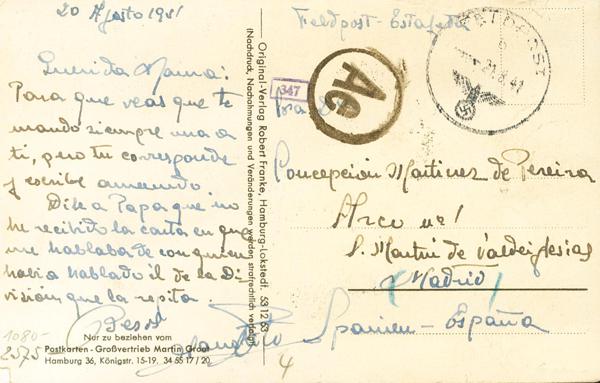 20 Agosto 1941
Querida Mama:
Para que veas que te
mando siempre una a
ti, pero tu corresponde
y escribe amenudo.
Dile a Papa que no
he recibito la carta en que
me hablaba de con quien
habia hablado él de la Di-
visión que la repita.
Besos
1080-
2575
Nur zu beziehen vom
Postkarten - Großvertrieb Martin Groot
Hamburg 36, Königstr. 15-19. 34 55 17 / 20
Original-Verlag Robert Franke, Hamburg-Lokstedt. 53 12 63
(Nachdruck, Nachahmungen und Veränderungen werden strafrechtlich verfolgt)
Feldpost - Estafeta
FELDPOST
21.8.41
347
Ae
Concepción Martinez de Pereira
Arco nº 1
S. Martin de Valdeiglesias
(Madrid)
Spanien - España
4